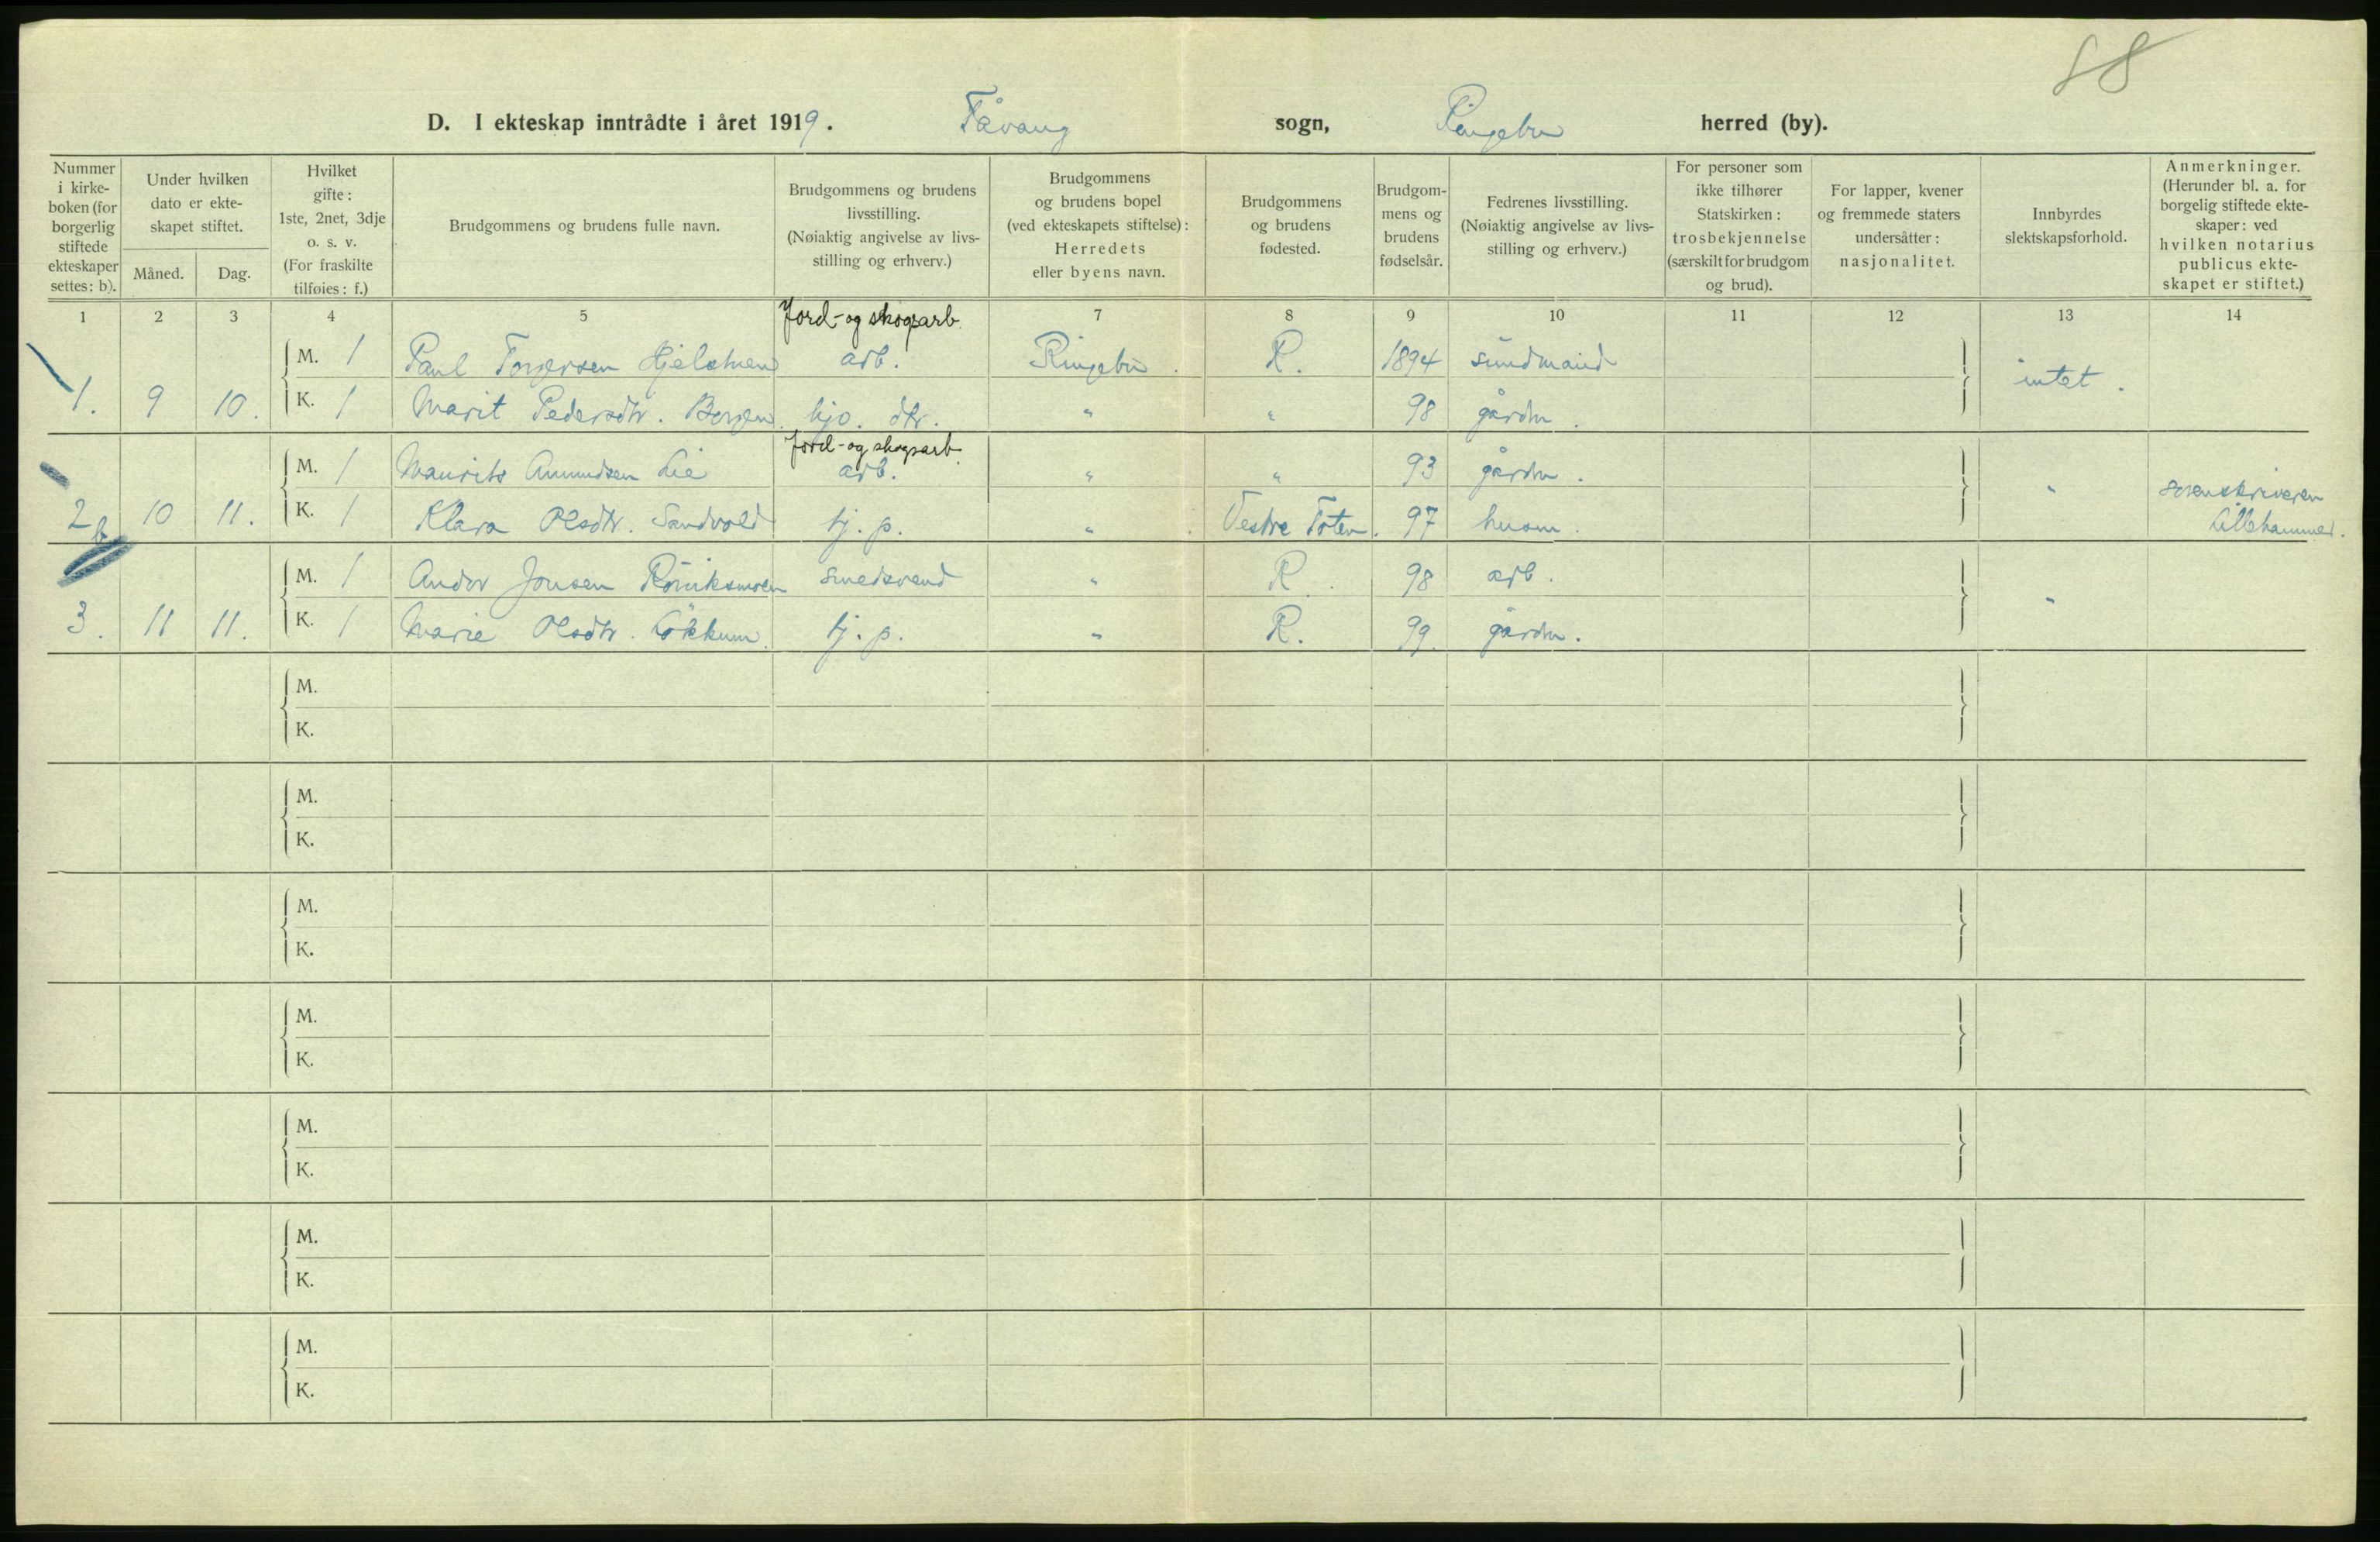 88
D. I ekteskap inntrådte i året 1919. Fåvang sogn, Ringebu herred (by).
Nummer i kirkeboken (for borgerlig stiftede ekteskaper settes: b).
Under hvilken dato er ekteskapet stiftet.
Måned. Dag.
Hvilket gifte: 1ste, 2net, 3dje o. s. v. (For fraskilte tilføies: f.)
Brudgommens og brudens fulle navn.
Brudgommens og brudens livsstilling. (Nøiaktig angivelse av livsstilling og erhverv.)
Brudgommens og brudens bopel (ved ekteskapets stiftelse): Herredets eller byens navn.
Brudgommens og brudens fødested.
Brudgommens og brudens fødselsår.
Fedrenes livsstilling. (Nøiaktig angivelse av livsstilling og erhverv.)
For personer som ikke tilhører Statskirken: trosbekjennelse (særskilt for brudgom og brud).
For lapper, kvener og fremmede staters undersåtter: nasjonalitet.
Innbyrdes slektskapsforhold.
Anmerkninger. (Herunder bl. a. for borgelig stiftede ekteskaper: ved hvilken notarius publicus ekteskapet er stiftet.)
1 2 3 4 5 6 7 8 9 10 11 12 13 14
Jord- og skogsarb.
M. 1 Paul Torgersen arb. Ringebu. R. 1894
1. 9 10. K. 1 Marit Pedersdtr. Borgen. hjo. dtr. " " 98 gårdbr. intet.
Jord- og skogsarb.
M. 1 Maurits Amundsen Lie arb. " " 93 gårdbr.
2 b 10 11. K. 1 Klara Olsdtr. Sandvold tj. p. " Vestre Toten. 97 husm. " sorenskriveren Lillehammer.
M. 1 Andor Jonsen smedsvend " R. 98 arb.
3. 11 11. K. 1 Marie Olsdtr. Lökkum. tj. p. " R. 99. gårdbr. "
M.
K.
M.
K.
M.
K.
M.
K.
M.
K.
M.
K.
M.
K.